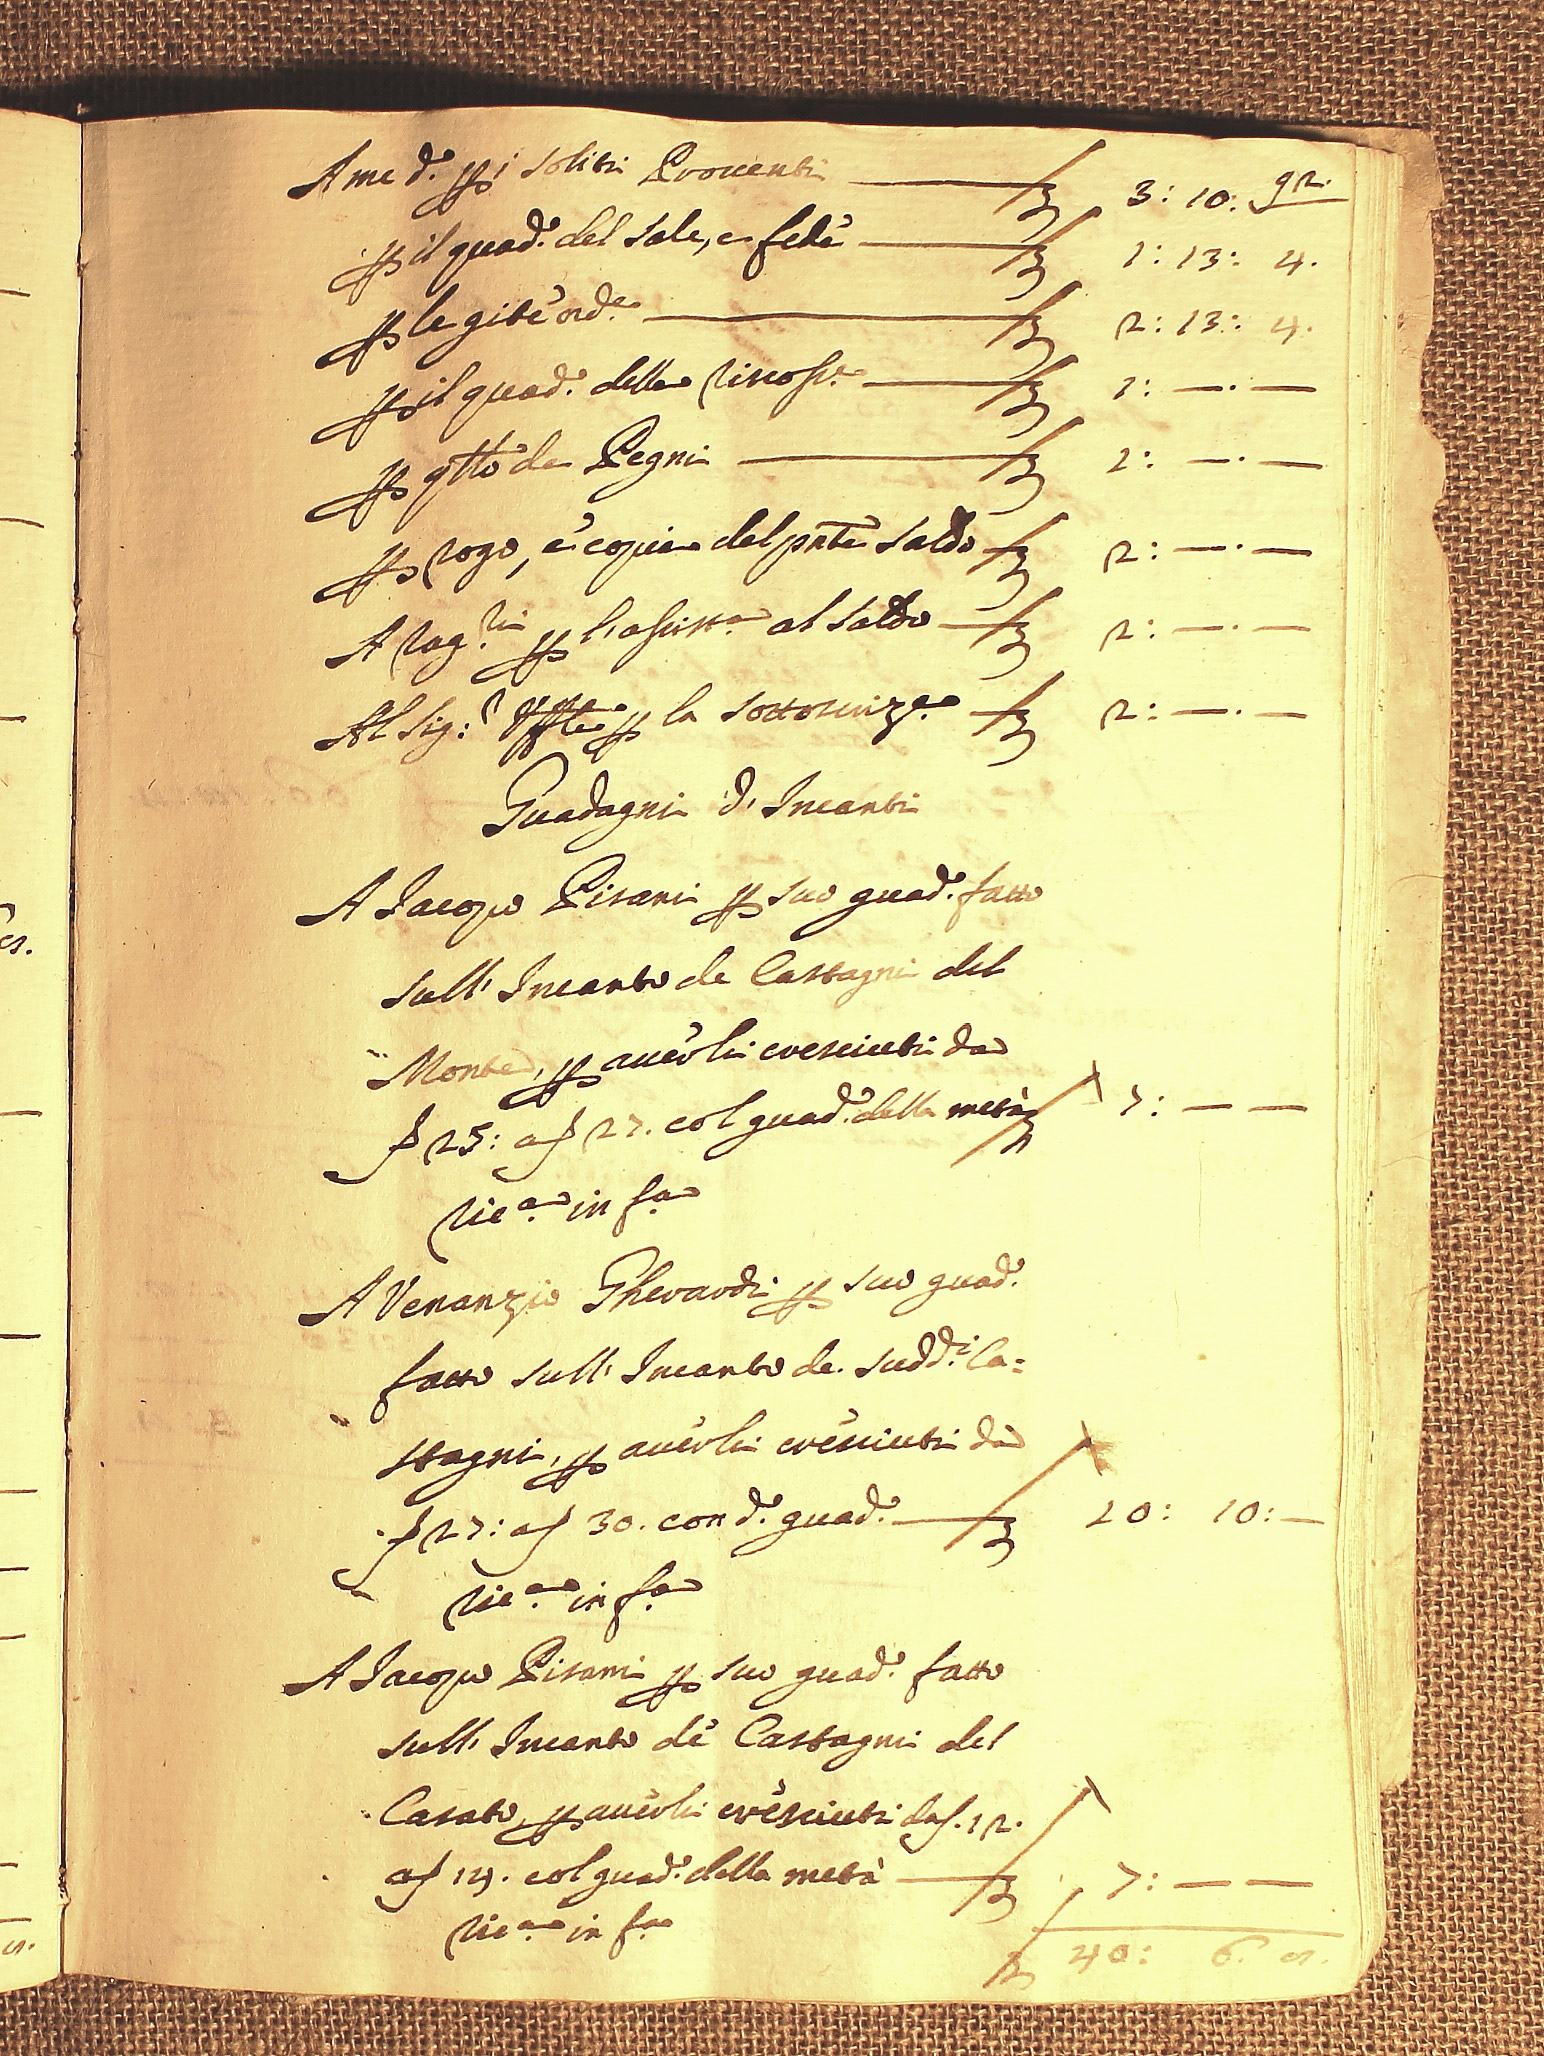 A me d.º p i soliti Proventi — 3: 10: 9 2.
p il quad.º del sale, e fede — 1: 13: 4.
p le gite ord.e — 2: 13: 4.
p il quad.º della riscoss.e — 1: — . —
p qtto de Pegni — 2: — . —
p rogo, è copia del pnte saldo — 2: — . —
A rag.ri p l'assist.a al saldo — 2: — . —
Al Sig.r p la sottoscriz.e — 2: — . —
Guadagni d'Incanti
A Jacopo Pisani p suo guad.º fatto
sull'Incanto de Castagni del
Monte, p averli cresciuti da
f 25: a f 27. col guad.º della metà — 7: — —
Ric.a in f.a
A Venanzio Gherardi p suo guad.º
fatto sull'Incanto de sudd.i Ca=
stagni, p averli crésciuti da
f 27: a f 30. con d.º guad.º — 10: 10: —
Ric.a in f.a
A Jacopo Pisani p suo guad.º fatto
sull'Incanto dè Castagni del
Casato, p averli crésciuti da f. 12.
a f 14. col guad.º della metà — 7: — —
Ric.a in f.a
40: 6.